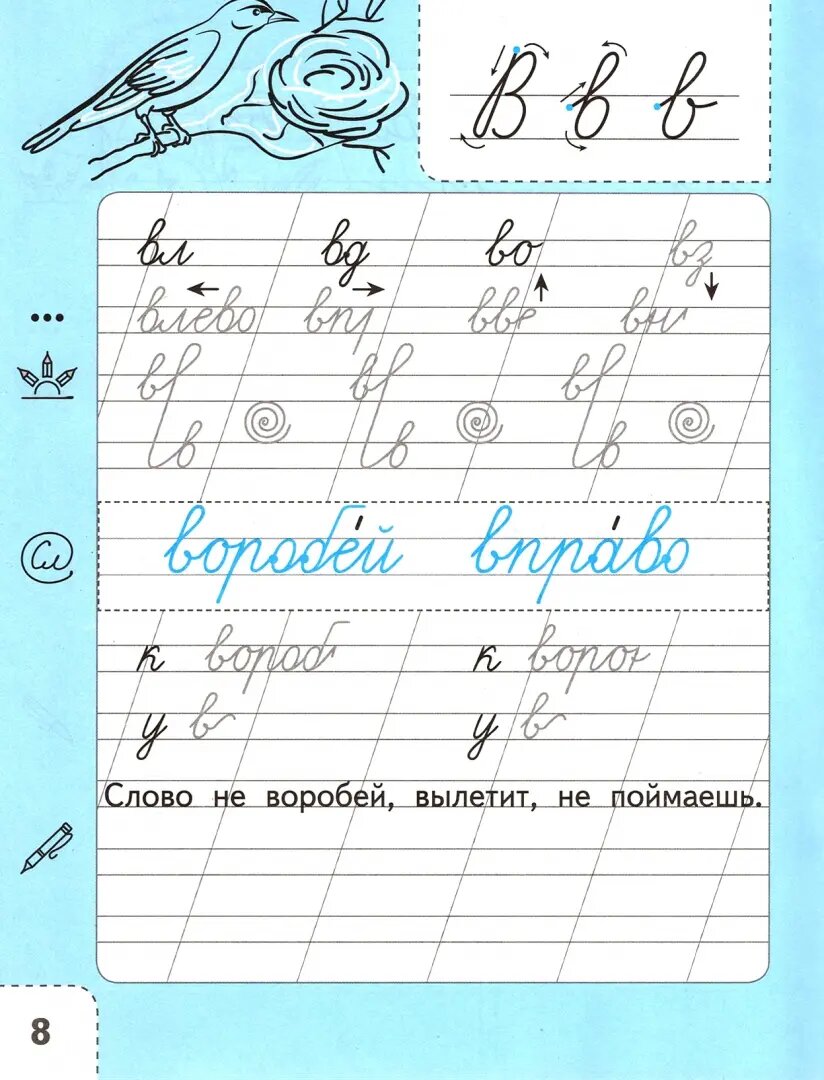 В в в
вл вд во вз
влево впр вве вни
в в в в в в
воробе́й впра́во
к вороб к ворон
у в у в
Слово не воробей, вылетит, не поймаешь.
Сл
8